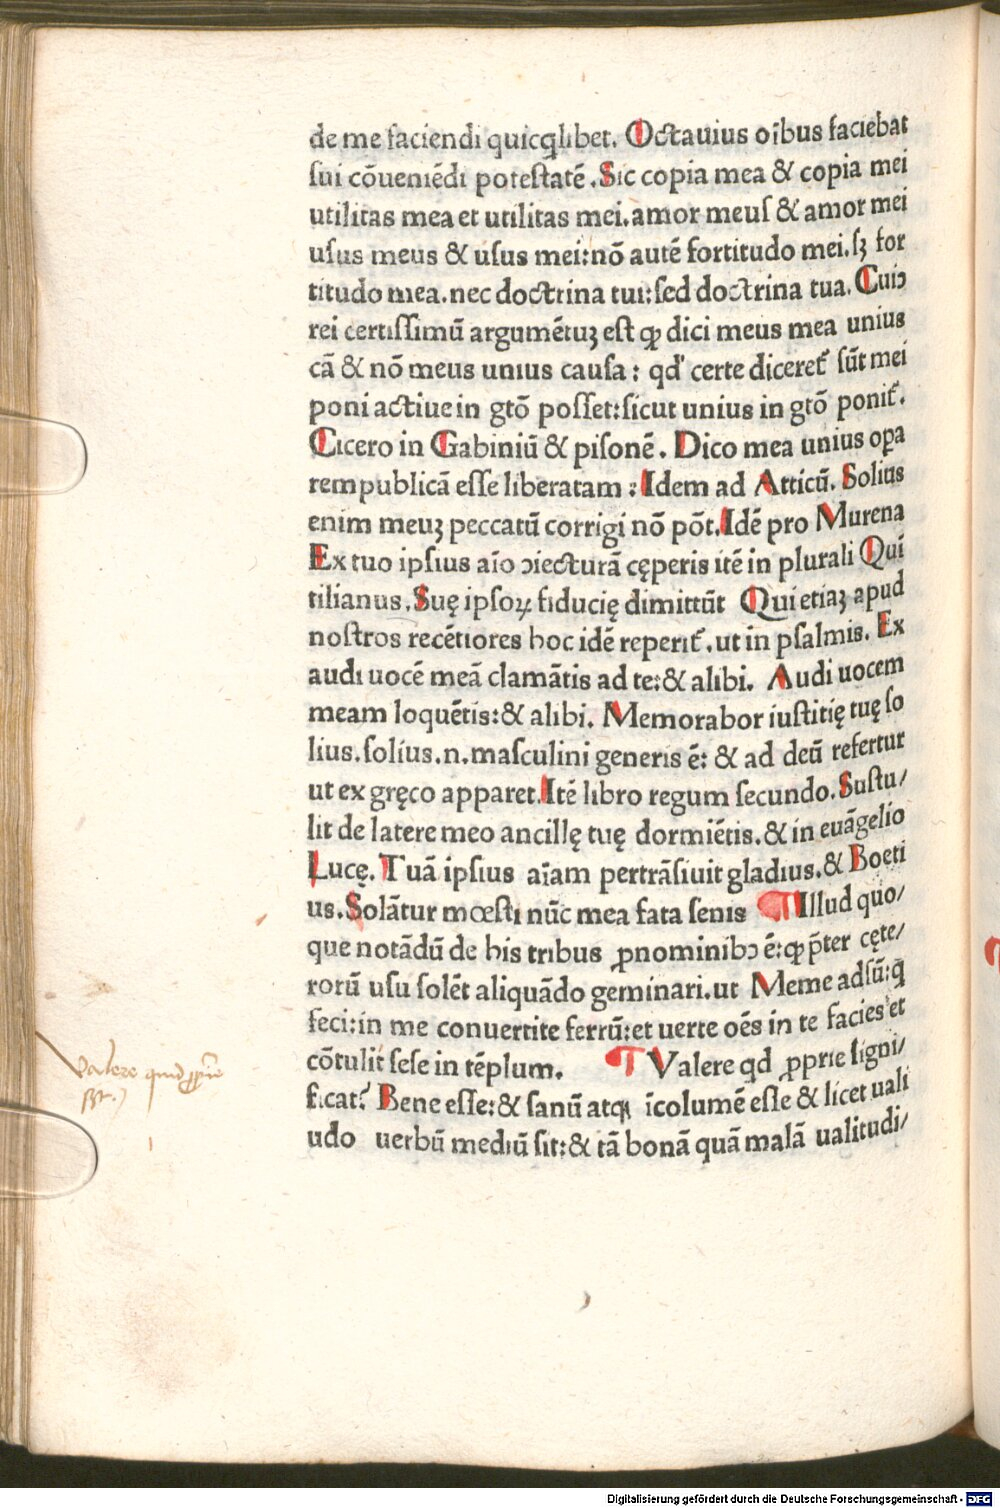 de me faciendi quicq̃libet. Octauius oībus faciebat
sui cōueniēdi potestatē. Sic copia mea & copia mei
utilitas mea et utilitas mei. amor meus & amor mei
usus meus & usus mei: nō autē fortitudo mei. sꝫ for
titudo mea. nec doctrina tui: sed doctrina tua. Cuiꝰ
rei certissimū argumētuꝫ est ꝙ dici meus mea unius
cā & nō meus unius causa: qď certe diceret̃ sūt mei
poni actiue in gtō posset: sicut unius in gtō ponit̃.
Cicero in Gabiniū & pisonē. Dico mea unius opa
rempublicā esse liberatam: Idem ad Atticū. Solius
enim meuꝫ peccatū corrigi nō pōt. Idē pro Murena
Ex tuo ipsius aīo ↄiecturā cęperis itē in plurali Qui
tilianus. Suę ipsoꝝ fiducię dimittūt Qui etiaꝫ apud
nostros recētiores hoc idē reperit̃. ut in psalmis. Ex
audi uocē meā clamātis ad te: & alibi. Audi uocem
meam loquētis: & alibi. Memorabor iustitię tuę so
lius. solius. n. masculini generis ē: & ad deū refertur
ut ex gręco apparet. Itē libro regum secundo. Sustu/
lit de latere meo ancillę tuę dormiētis. & in euāgelio
Lucę. Tuā ipsius aīam pertrāsiuit gladius. & Boeti
us. Solātur mœsti nūc mea fata senis ¶ Illud quo/
que notādū de his tribus ꝓnominibꝰ ē: ꝙ p̄ter cęte/
rorū usu solēt aliquādo geminari. ut Meme adsū: q̄
feci: in me conuertite ferrū: et uerte oēs in te facies et
cōtulit sese in tēplum. ¶ Valere qd ꝓprie signi/
ficat? Bene esse: & sanū atqꝫ īcolumē esse & licet uali
udo uerbū mediū sit: & tā bonā quā malā ualitudi/
Valere quid ꝓprie
Digitalisierung gefördert durch die Deutsche Forschungsgemeinschaft - DFG